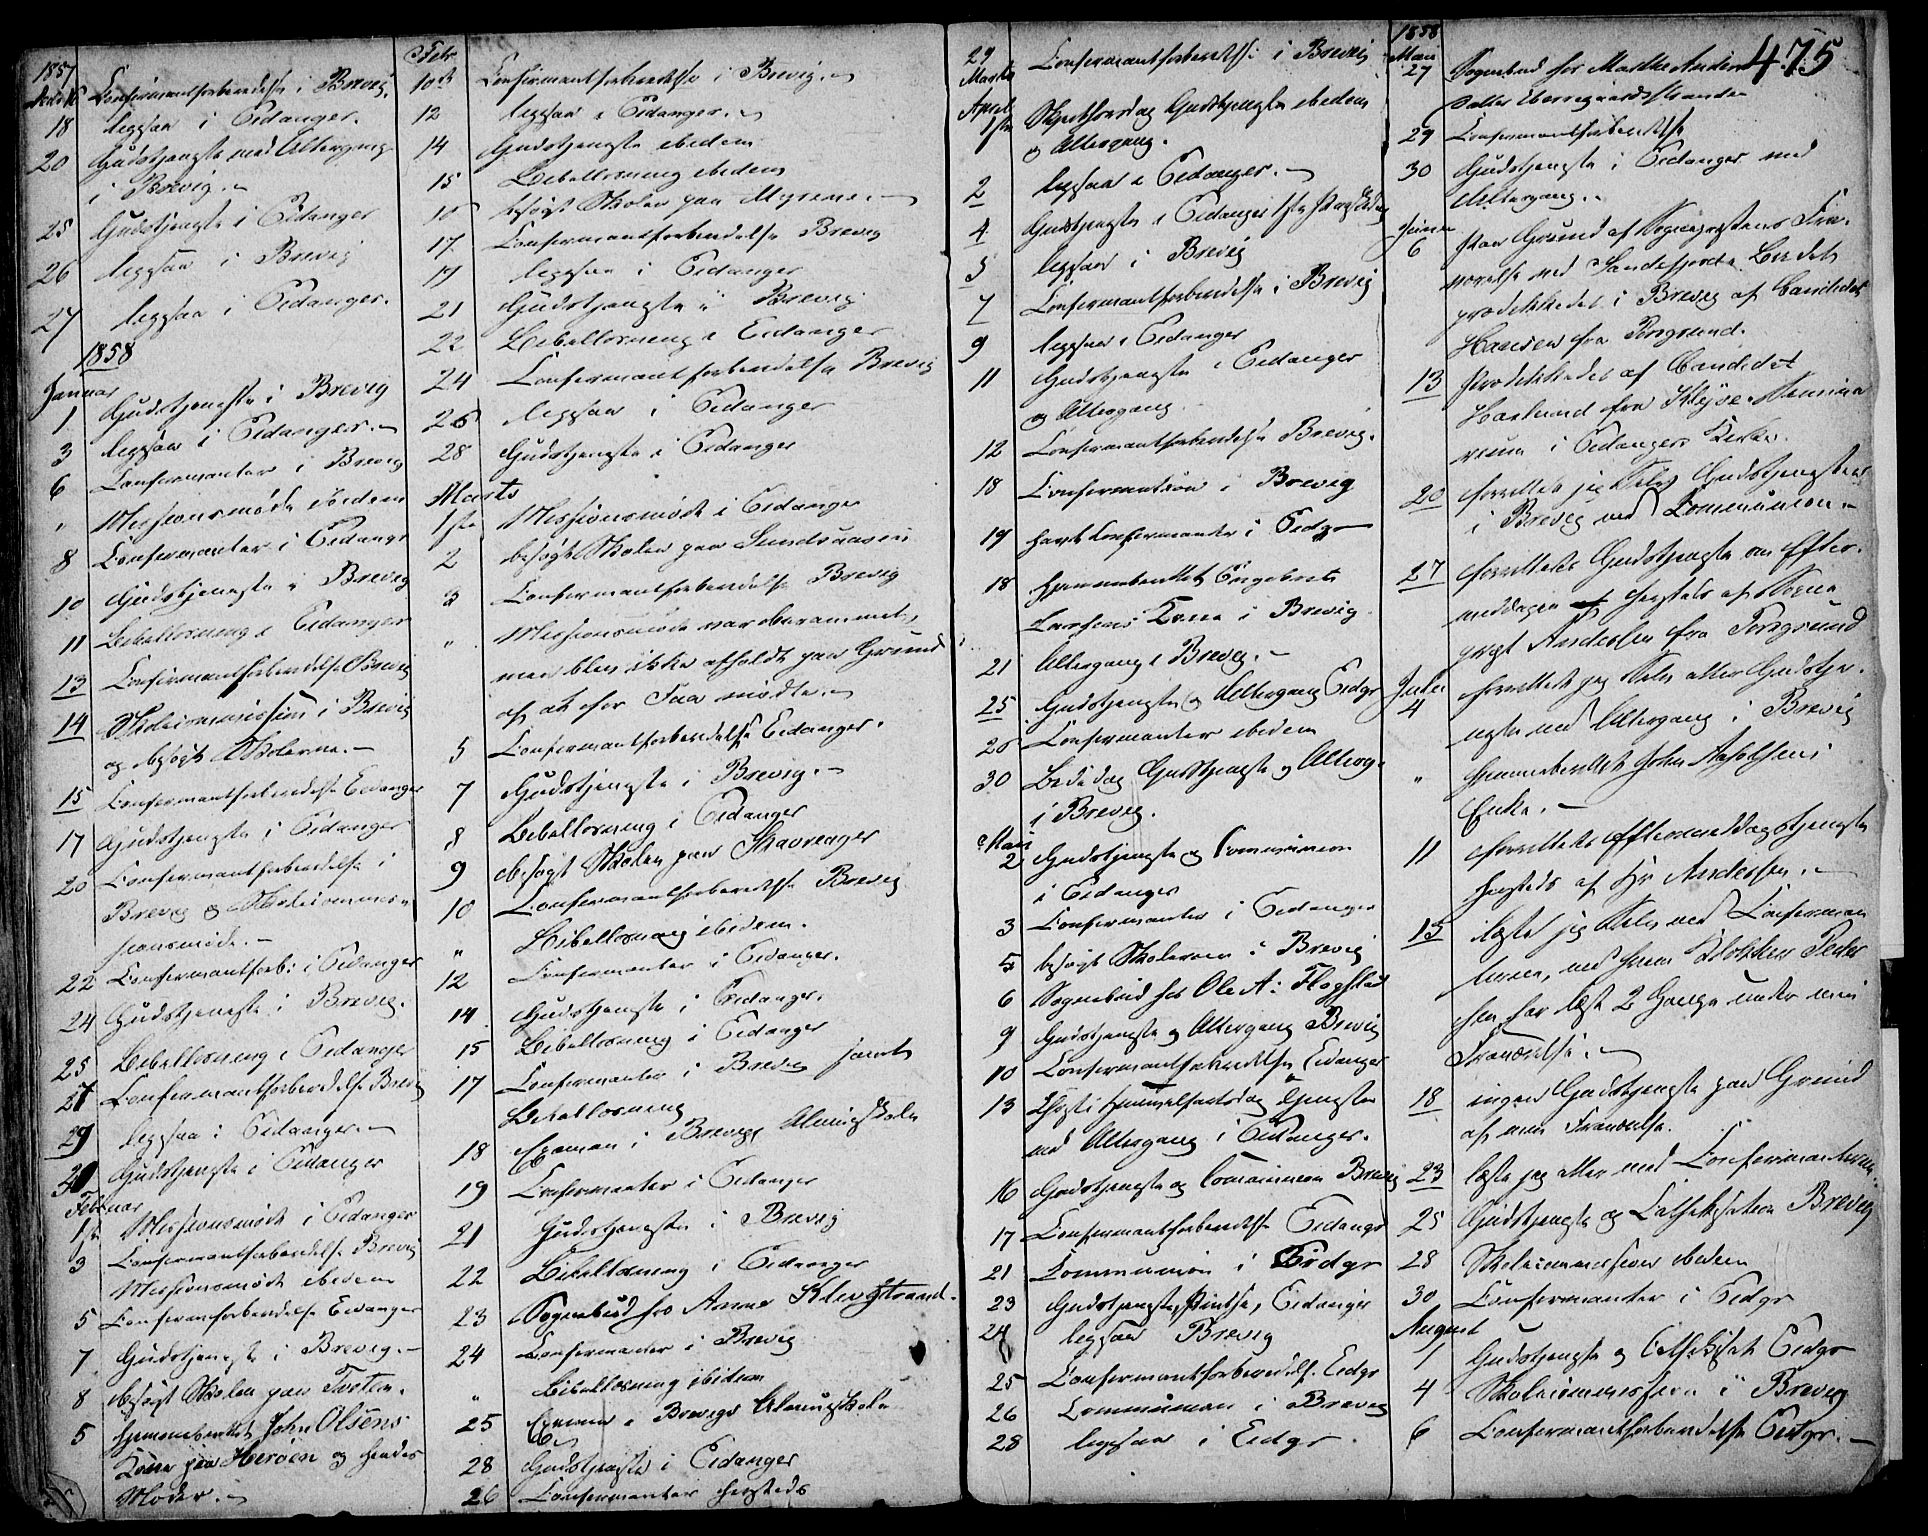 1857
Decbr 16 Confirmantforberedelse i Brevig.
18 ligesaa i Eidanger.
20 Gudstjeneste med Altergang
i Brevig.
25 Gudstjeneste i Eidanger
26 ligesaa i Brevig
27 ligesaa i Eidanger.
1858
Januar
1 Gudstjeneste i Brevig
3 ligesaa i Eidanger.
6 Confirmanter i Brevig
" Missionsmøde ibidem
8 Confirmanter i Eidangr
10 Gudstjeneste i Brevig
11 Bibellæsning i Eidanger
13 Confirmantforberedelse Brevig
14 Skolecommission i Brevig
og besøgt Skolerne.
15 Confirmantforberedelse Eidanger
17 Gudstjeneste i Eidanger
20 Confirmantforberedelse i
Brevig og Skolecommis-
sionsmøde.
22 Confirmantforb: i Eidanger
24 Gudstjeneste i Brevig.
25 Bibellæsning i Eidanger
27 Confirmantforberedelse Brevig
29 ligesaa i Eidanger.
31 Gudstjeneste i Eidanger
Februar
1ste Missionsmøde i Eidanger
3 Confirmantforberedelse Brevig
Missionsmøde ibidem
5 Confirmantforberedelse Eidanger
7 Gudstjeneste i Brevig.
8 besøgt Skolen paa
5 hjemmeberettet John Olsens
Kone paa Herøen og hendes
Moder.
Febr
10de Confirmantforberedelse i Brevig.
12 ligesaa i Eidanger.
14 Gudstjeneste ibidem
15 Bibellæsning ibidem
16 besøgt Skolen paa Myrene.
17 Confirmantforberedelse Brevig
19 ligesaa i Eidanger
21 Gudstjeneste i Brevig
22 Bibellæsning i Eidanger
24 Confirmantforberedelse Brevig
26 ligesaa i Eidanger
28 Gudstjeneste i Eidanger
Marts
1ste Missionsmøde i Eidanger
2 besøgt Skolen paa Sundsaasen
3 Confirmantforberedelse Brevig
" Missionsmøde var berammet,
men blev ikke afholdt paa Grund
af at for Faa mødte.
5 Confirmantforberedelse Eidanger.
7 Gudstjeneste i Brevig.
8 Bibellæsning i Eidanger
9 besøgt Skolen paa Skavrager
10 Confirmantforberedelse Brevig
" Bibellæsning ibidem.
12 Confirmanter i Eidanger.
14 Gudstjeneste i Eidanger.
15 Bibellæsning i Eidanger
17 Confirmanter i Brevig samt
Bibellæsning
18 Examen i Brevigs Almueskole
19 Confirmanter i Eidanger
21 Gudstjeneste i Brevig
22 Bibellæsning i Eidanger
23 Sognebud hos Anne Klevstrand.
24 Confirmanter i Brevig
" Bibellæsning ibidem
25 Examen i Brevigs Almueskole
28 Gudstjeneste i Eidanger
26 Confirmanter sammesteds
29
Marts Confirmantforberedelse i Brevig
April
1ste Skjertorsdag Gudstjeneste ibidem
og Altergang.
2 ligesaa i Eidanger.
4 Gudstjeneste i Eidanger 1ste Paaskedag
5 ligesaa i Brevig
7 Confirmantforberedelse i Brevig
9 ligesaa i Eidanger
11 Gudstjeneste i Eidanger
og Altergang.
12 Confirmantforberedelse Brevig.
18 Confirmation i Brevig
19 havt Confirmanter i Eidgr
18 hjemmeberettet Engebret
Larsens Kone i Brevig
21 Altergang i Brevig.
25 Gudstjeneste og Altergang Eidgr
26 Confirmanter ibidem
30 Bededag Gudstjeneste og Alterg.
i Brevig.
Mai
2 Gudstjeneste og Communion
i Eidanger
3 Confirmanter i Eidanger
5 besøgt Skolerne i Brevig
6 Sognebud hos Ole A: Flogstad
9 Gudstjeneste og Altergang Brevig
10 Confirmantforberedelse Eidanger
13 Christi Himmelfartsdag Tjeneste
med Altergang i Eidanger.
16 Gudstjeneste og Communion Brevig
17 Confirmantforberedelse Eidangr
21 Communion i Eidgr
23 Gudstjeneste, Pintse, Eidanger
24 ligesaa Brevig
25 Confirmantforberedelse Eidgr
26 Communion i Brevig
28 ligesaa i Eidgr.
475
1858
Mai
27 Sognebud hos Marthe
29 Confirmantforberedelse
30 Gudstjeneste i Eidanger med
Altergang.
Juni
6 Paa Grund af Sognepræstens Fra-
værelse ved Sandefjords Badet
prædikkedes i Brevig af Candidat
Hansen fra Porsgrund.
13 Prædikkedes af Candidat
Haslund fra
i Eidangers Kirke.
20 forrettet jeg selv Gudstjenesten
i Brevig med Communion.
27 forrettedes Gudstjeneste om Efter-
middagen sammesteds af Sogne
præst Andersen fra Porsgrund
Juli
4 forrettet jeg selv atter Gudstje-
neste med Altergang i Brevig
" hjemmeberettet John
Enke.
11 forrettedes Eftermiddagstjeneste
sammesteds af Hr Andersen.
15 læste jeg selv med Confirman
terne, med hvem Klokker Peder
sen har læst 2 Gange under min
Fraværelse.
18 ingen Gudstjeneste paa Grund
af min Fraværelse.
23 læste jeg atter med Confirmanterne
25 Gudstjeneste og Cathekisation Brevig
28 Skolecommission ibidem
30 Confirmanter i Eidgr
August
1 Gudstjeneste og Cathekisat. Eidgr
4 Skolecommission i Brevig
6 Confirmantforberedelse Eidgr.